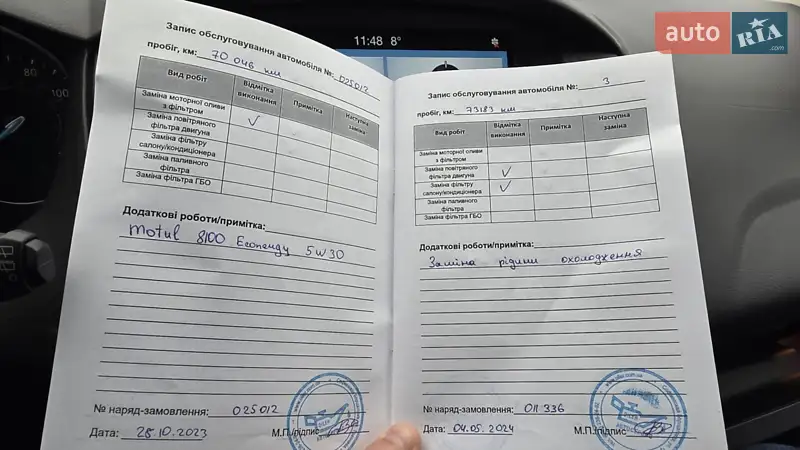 11:48 8°
auto RIA .com
80
100
Запис обслуговування автомобіля №: 025012
пробіг, км: 70 046 км
Вид робіт Відмітка виконання Примітка Наступна заміна
Заміна моторної оливи з фільтром ✓
Заміна повітряного фільтра двигуна
Заміна фільтру салону/кондиціонера
Заміна паливного фільтра
Заміна фільтра ГБО
Додаткові роботи/примітка:
Motul 8100 Econergy 5w30
№ наряд-замовлення: 025012
Дата: 28.10.2023 М.П./підпис
Запис обслуговування автомобіля №: 3
пробіг, км: 73183 км
Вид робіт Відмітка виконання Примітка Наступна заміна
Заміна моторної оливи з фільтром
Заміна повітряного фільтра двигуна ✓
Заміна фільтру салону/кондиціонера ✓
Заміна паливного фільтра
Заміна фільтра ГБО
Додаткові роботи/примітка:
Заміна рідини охолодження
№ наряд-замовлення: 011 336
Дата: 04.05.2024 М.П./підпис